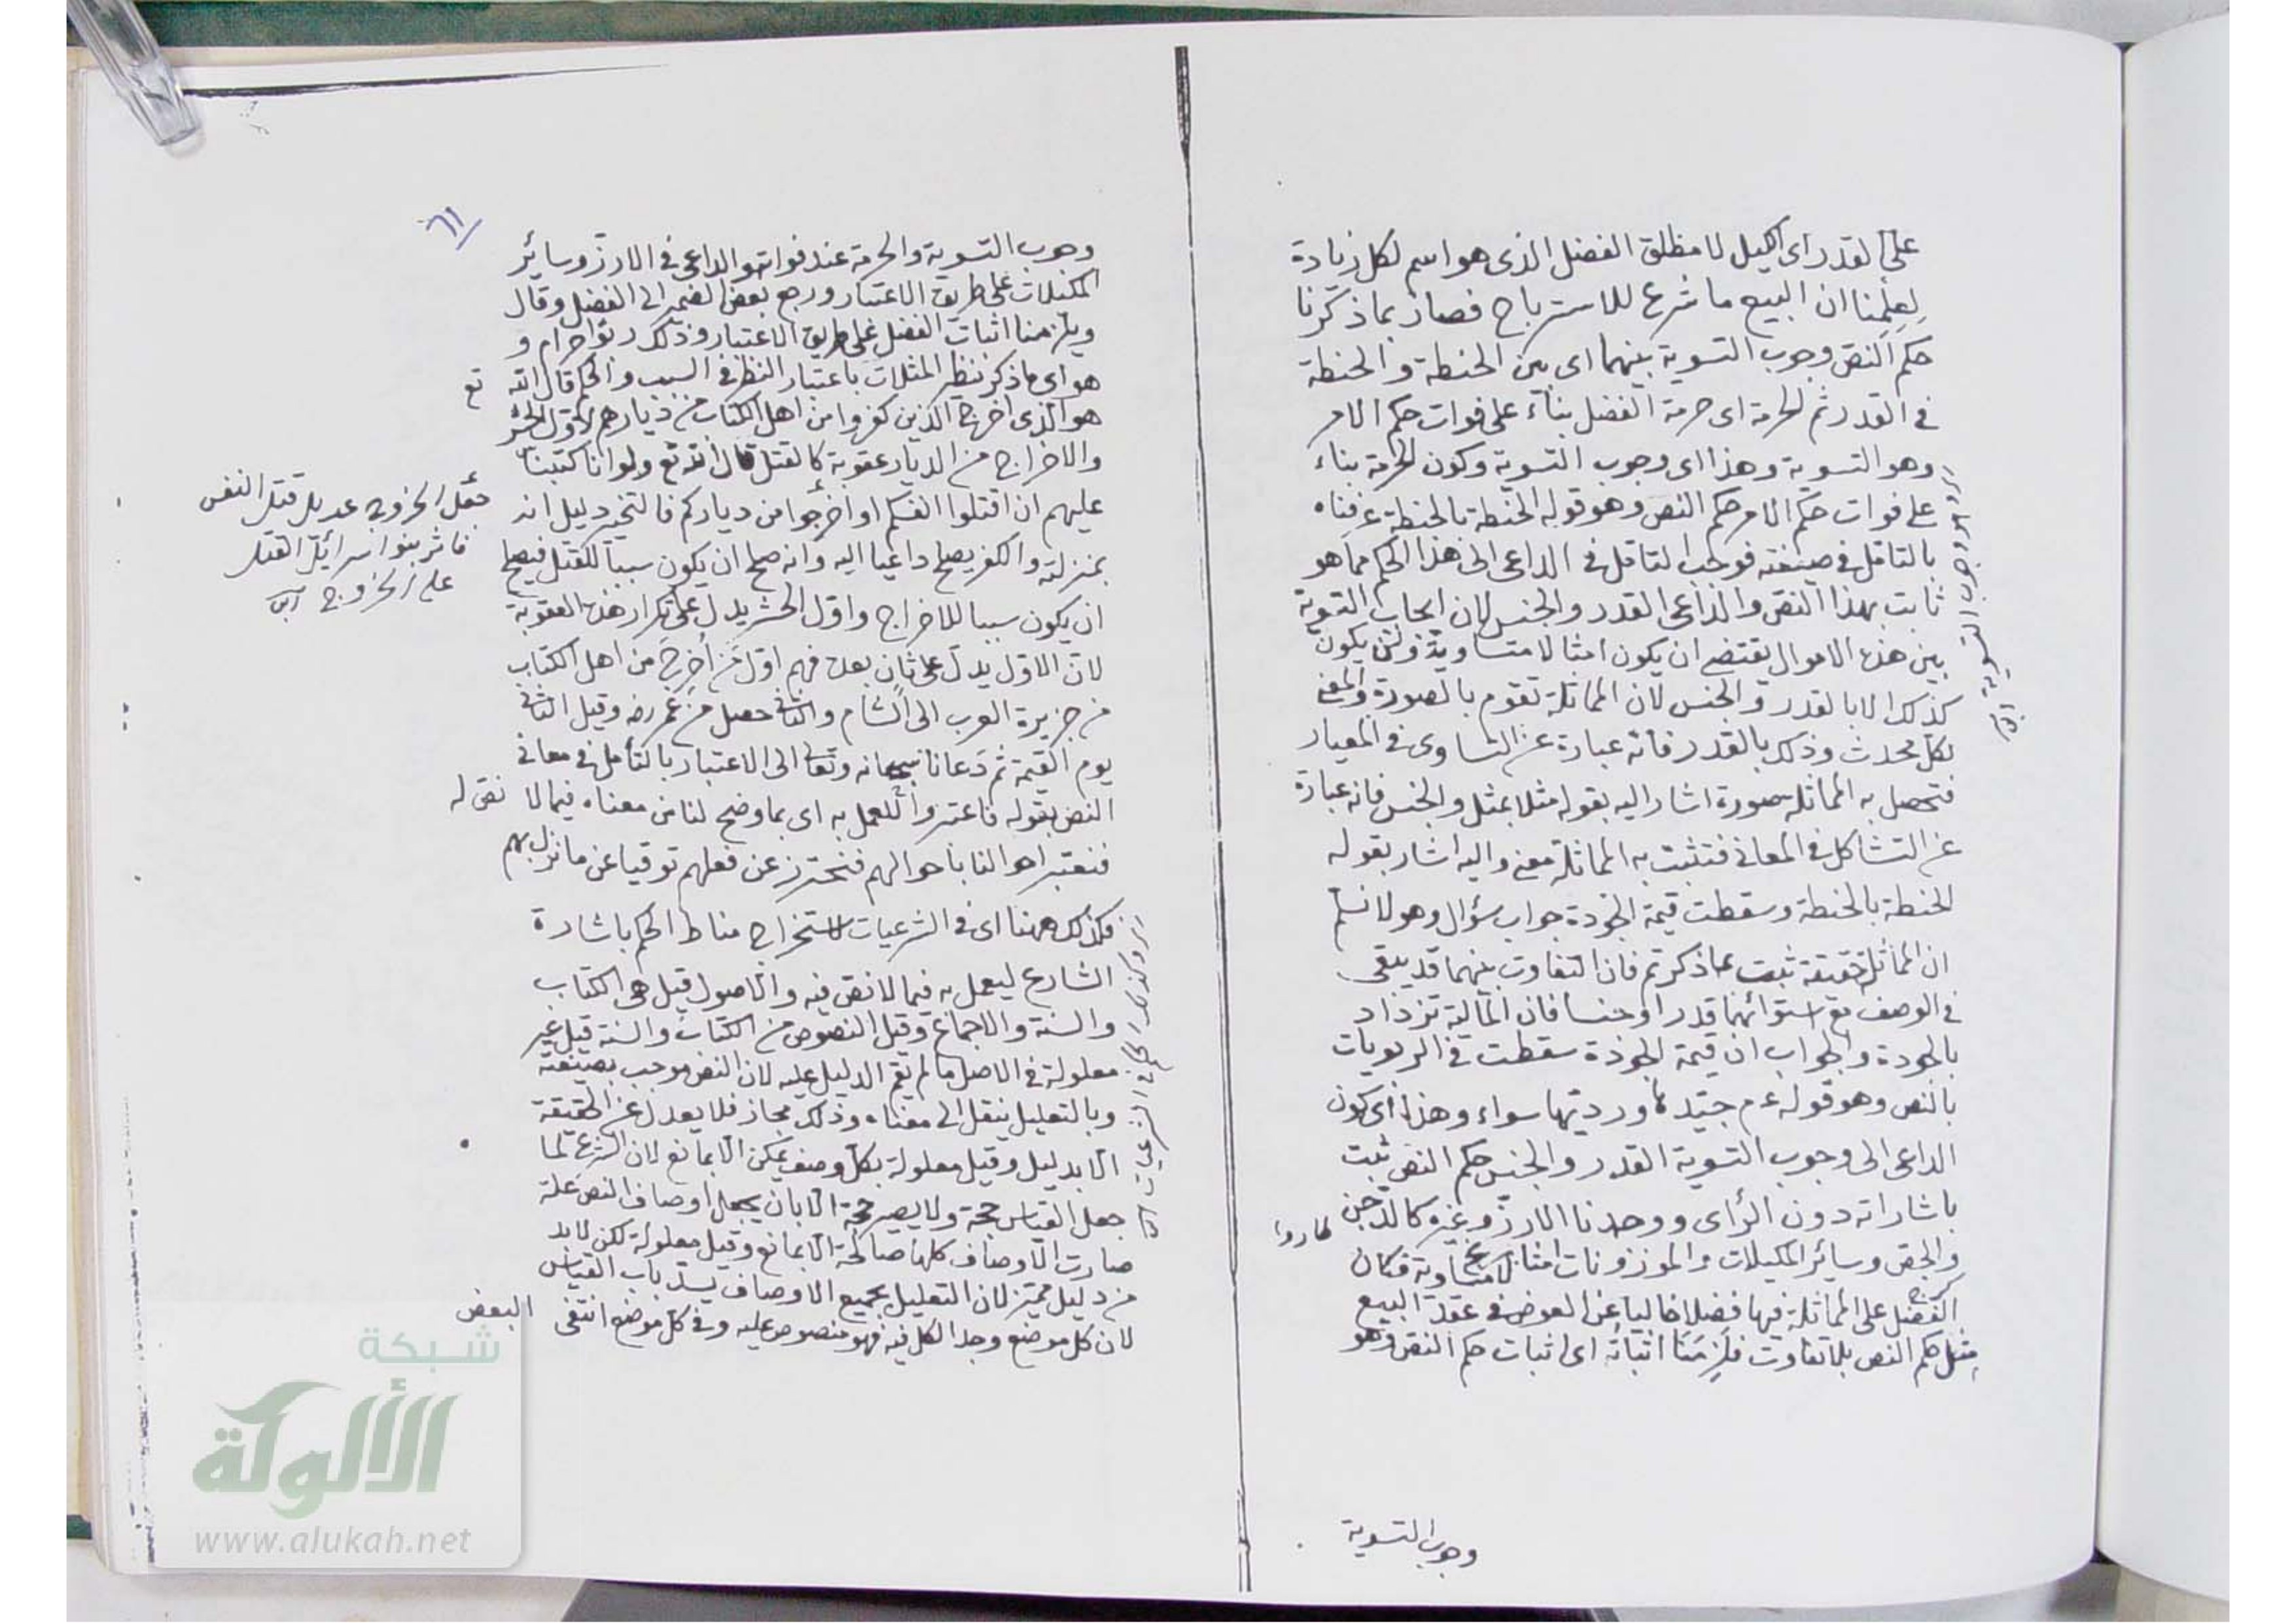 على القدر اى الكيل لا مطلق الفضل الذى هو اسم لكل زيادة
لعلمنا ان البيع ما شرع للاسترباح فصار بما ذكرنا
حكم النص وجوب التسوية بينهما اى بين الحنطة والحنطة
فى القدر ثم الحرمة اى حرمة الفضل بناء على فوات حكم الامر
وهو التسوية وهذا اى وجوب التسوية وكون الحرمة بناء
على فوات حكم الامر حكم النص وهو قوله الحنطة بالحنطة عرفناه
بالتامل فى صيغته فوجب التامل فى الداعى الى هذا الحكم مما هو
ثابت بهذا النص والداعى القدر والجنس لان ايجاب التسوية
بين هذه الاموال يقتضى ان يكون امثالا متساوية ولن يكون
كذلك الا بالقدر والجنس لان المماثلة تقوم بالصورة والمعنى
لكل محدث وذلك بالقدر فانه عبارة عن التساوى فى المعيار
فتحصل به المماثلة صورة اشار اليه بقوله مثلا بمثل والجنس فانه عبارة
عن التشاكل فى المعانى فتثبت به المماثلة معنى واليه اشار بقوله
الحنطة بالحنطة وسقطت قيمة الجودة جواب سؤال وهو لا نسلم
ان المماثلة حقيقة ثبت بما ذكرتم فان التفاوت بينهما قد يبقى
فى الوصف مع استوائهما قدرا وجنسا فان المالية تزداد
بالجودة والجواب ان قيمة الجودة سقطت فى الربويات
بالنص وهو قوله عم جيدها ورديها سواء وهذا اى كون
الداعى الى وجوب التسوية القدر والجنس حكم النص ثبت
باشاراته دون الرأى ووجدنا الارز وغيره كالدخن
والجص وسائر المكيلات والموزونات امثالا متساوية فكان
الفضل على المماثلة فيها فضلا خاليا عن العوض فى عقد البيع
مثل حكم النص بلا تفاوت فلزمنا اثباته اى اثبات حكم النص وهو
وجوب التسوية
وجوب التسوية والحرمة عند فواته والداعى فى الارز وسائر
المكيلات على طريق الاعتبار ورجع بعض الضمير الى الفضل وقال
ويلزمنا اثبات الفضل على طريق الاعتبار وذلك ربوا حرام و
هو اى ما ذكر نظير المثلات باعتبار النظر فى السبب والحكم قال الله تع
هو الذى اخرج الذين كفروا من اهل الكتاب من ديارهم لاول الحشر
والاخراج من الديار عقوبة كالقتل قال الله تع ولو انا كتبنا
عليهم ان اقتلوا انفسكم او اخرجوا من دياركم فالتخيير دليل انه
بمنزلته والكفر يصلح داعيا اليه وانه صلح ان يكون سببا للقتل فيصلح
ان يكون سببا للاخراج واول الحشر يدل على تكرار هذه العقوبة
لان الاول يدل على ثان بعده فهم اول من أخرج من اهل الكتاب
من جزيرة العرب الى الشام والثانى حصل من عمر رضه وقيل الثانى
يوم القيمة ثم دعانا سبحانه وتعالى الى الاعتبار بالتأمل فى معانى
النص بقوله فاعتبروا للعمل به اى بما وضح لنا من معناه فيما لا نص له
فنعتبر احوالنا باحوالهم فنحترز عن فعلهم توقيا عن ما نزل بهم
فكذلك ههنا اى فى الشرعيات لاستخراج مناط الحكم باشارة
الشارع ليعمل به فيما لا نص فيه والاصول قيل هى الكتاب
والسنة والاجماع وقيل النصوص من الكتاب والسنة قيل غير
معلولة فى الاصل ما لم يقم الدليل عليه لان النص موجب بصيغته
وبالتعليل ينقل الى معناه وذلك مجاز فلا يعدل عن الحقيقة
الا بدليل وقيل معلولة بكل وصف يمكن الا بمانع لان الشرع لما
جعل القياس حجة ولا يصير حجة الا بان يجعل اوصاف النص علة
صارت الاوصاف كلها صالحة الا بمانع وقيل معلولة لكن لا بد
من دليل مميز لان التعليل بجميع الاوصاف يسد باب القياس
لان كل موضع وجد الكل فيه فهو منصوص عليه وفى كل موضع انتفى البعض
جعل الخروج عديل قتل النفس
فاثر بنوا اسرائيل القتل
على الخروج
شبكة
الألوكة
www.alukah.net